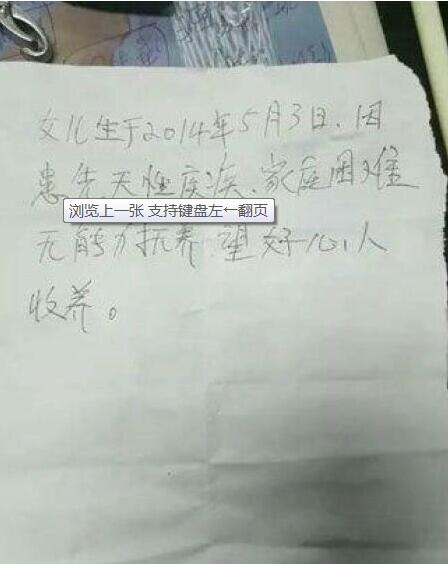 女儿生于2014年5月3日、因
患先天性疾疾、家庭困难
浏览上一张 支持键盘左←翻页
无能力抚养.望好心人
收养。